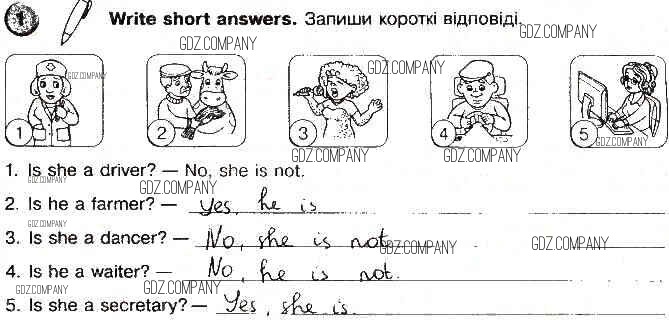 1 Write short answers. Запиши короткі відповіді. GDZ.COMPANY
GDZ.COMPANY
GDZ.COMPANY GDZ.COMPANY
1 2 3 4 5
GDZ.COMPANY
GDZ.COMPANY GDZ.COMPANY
1. Is she a driver? — No, she is not.
GDZ.COMPANY GDZ.COMPANY
2. Is he a farmer? — Yes, he is
GDZ.COMPANY
3. Is she a dancer? — No, she is not GDZ.COMPANY GDZ.COMPANY
4. Is he a waiter? — No, he is not.
GDZ.COMPANY GDZ.COMPANY
5. Is she a secretary? — Yes, she is.